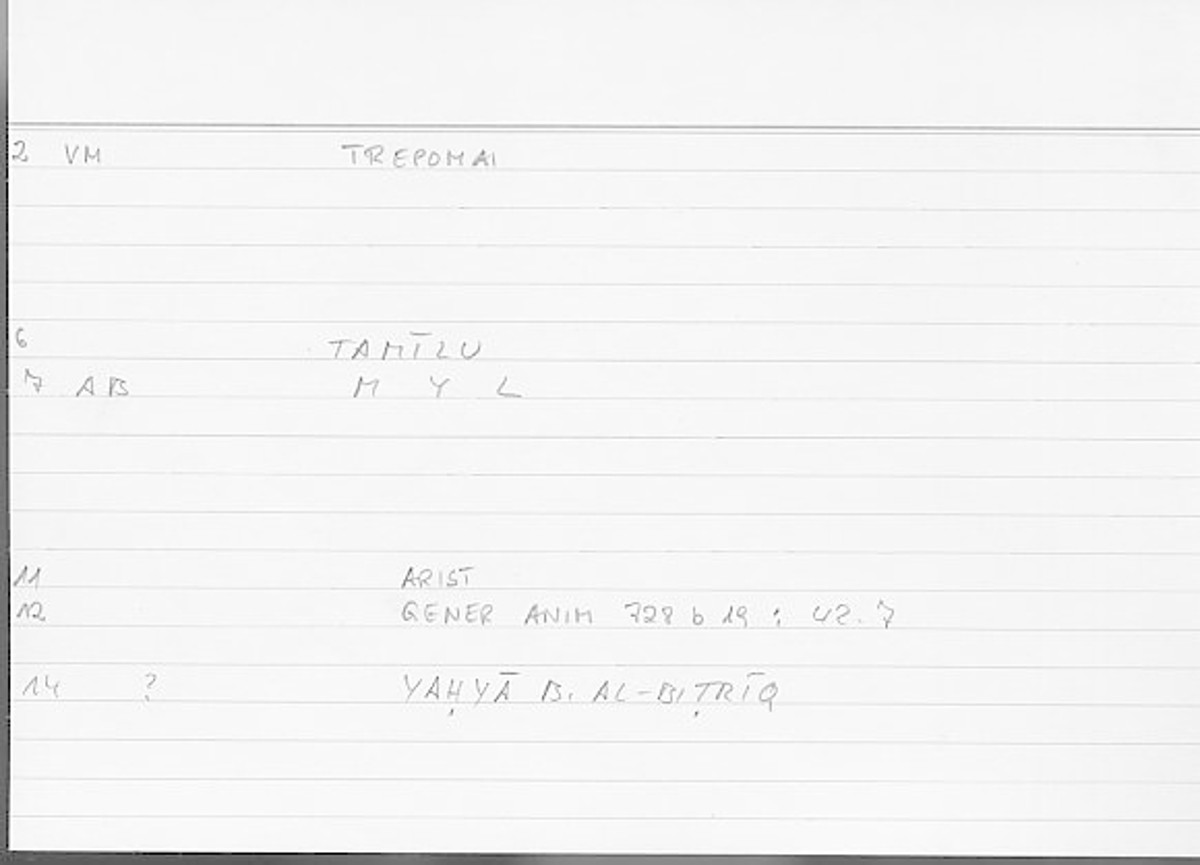 2 VM TREPOMAI
6 TAMĪLU
7 AB M Y L
11 ARIST
12 GENER ANIM 728 b 19 : 42.7
14 ? YAḤYĀ B. AL-BIṬRĪQ